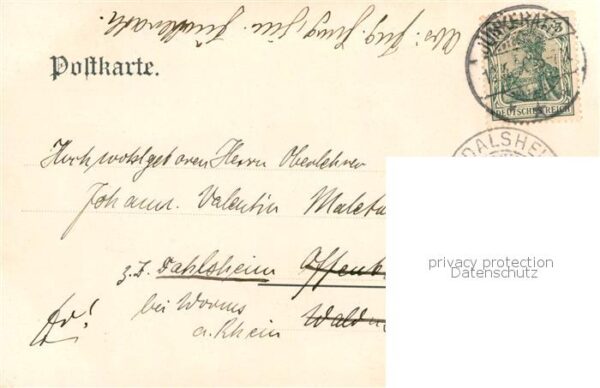 Abs: Ing. Jung,
Postkarte.
JÜNKERATH
DEUTSCHES REICH
DALSHEI
Hochwohlgeboren Herrn Oberlehrer
Johann Valentin
z. Z. Dahlsheim Offenb
bei Worms
a. Rhein
privacy protection
Datenschutz